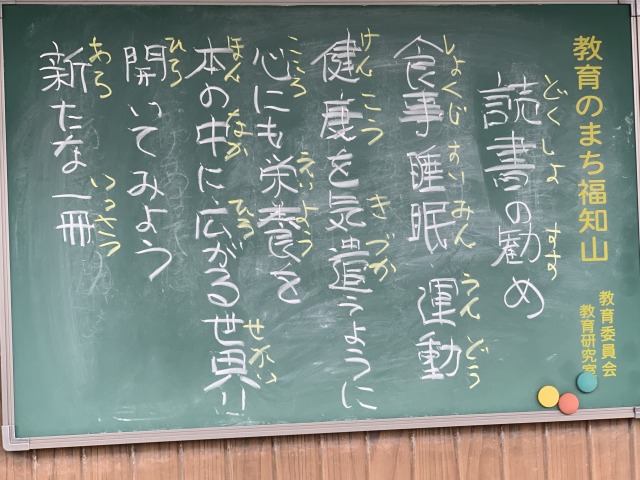 教育のまち福知山
教育委員会
教育研究室
どくしょ すす
読書の勧め
しょくじ すいみん うんどう
食事 睡眠 運動
けんこう きづか
健康を気遣うように
こころ えいよう
心にも栄養を
ほん なか ひろ せかい
本の中に広がる世界に
ひら
開いてみよう
あら いっさつ
新たな一冊